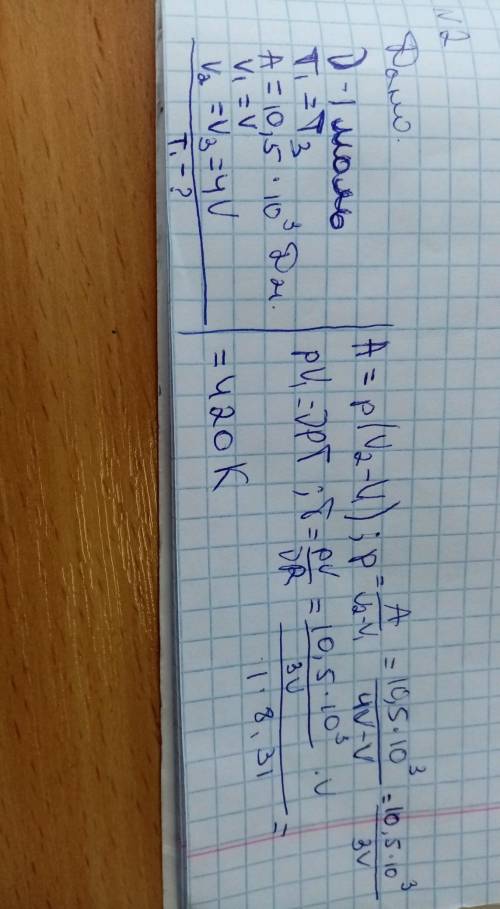 N2
Дано.
ν-1 моль
T₁ = T₃
A = 10,5 · 10³ Дж.
V₁ = V
V₂ = V₃ = 4V
T₁ - ?
A = p(V₂-V₁) ; p = A/(V₂-V₁) = 10,5·10³/(4V-V) = 10,5·10³/3V
pV₁ = νRT ; T = pV/νR = (10,5·10³/3V · V)/(1·8,31) =
= 420K